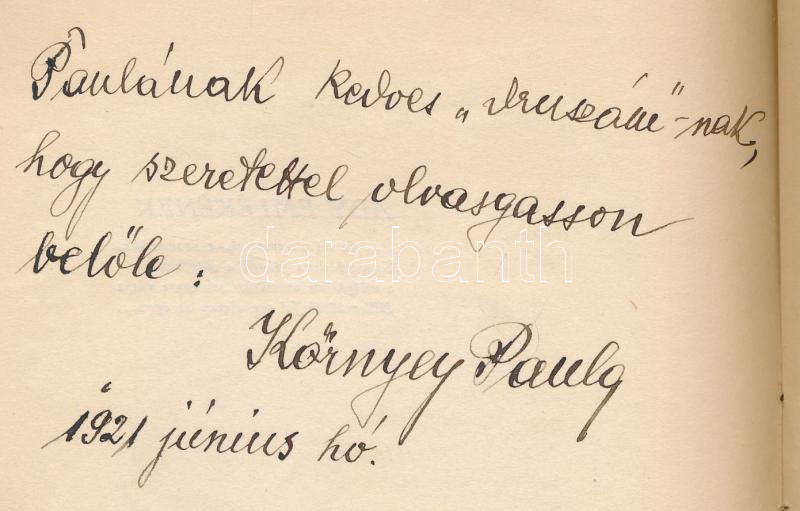 Paulának kedves „druszám"-nak,
hogy szeretettel olvasgasson
belőle:
Környey Paula
1921 június hó.
darabanth